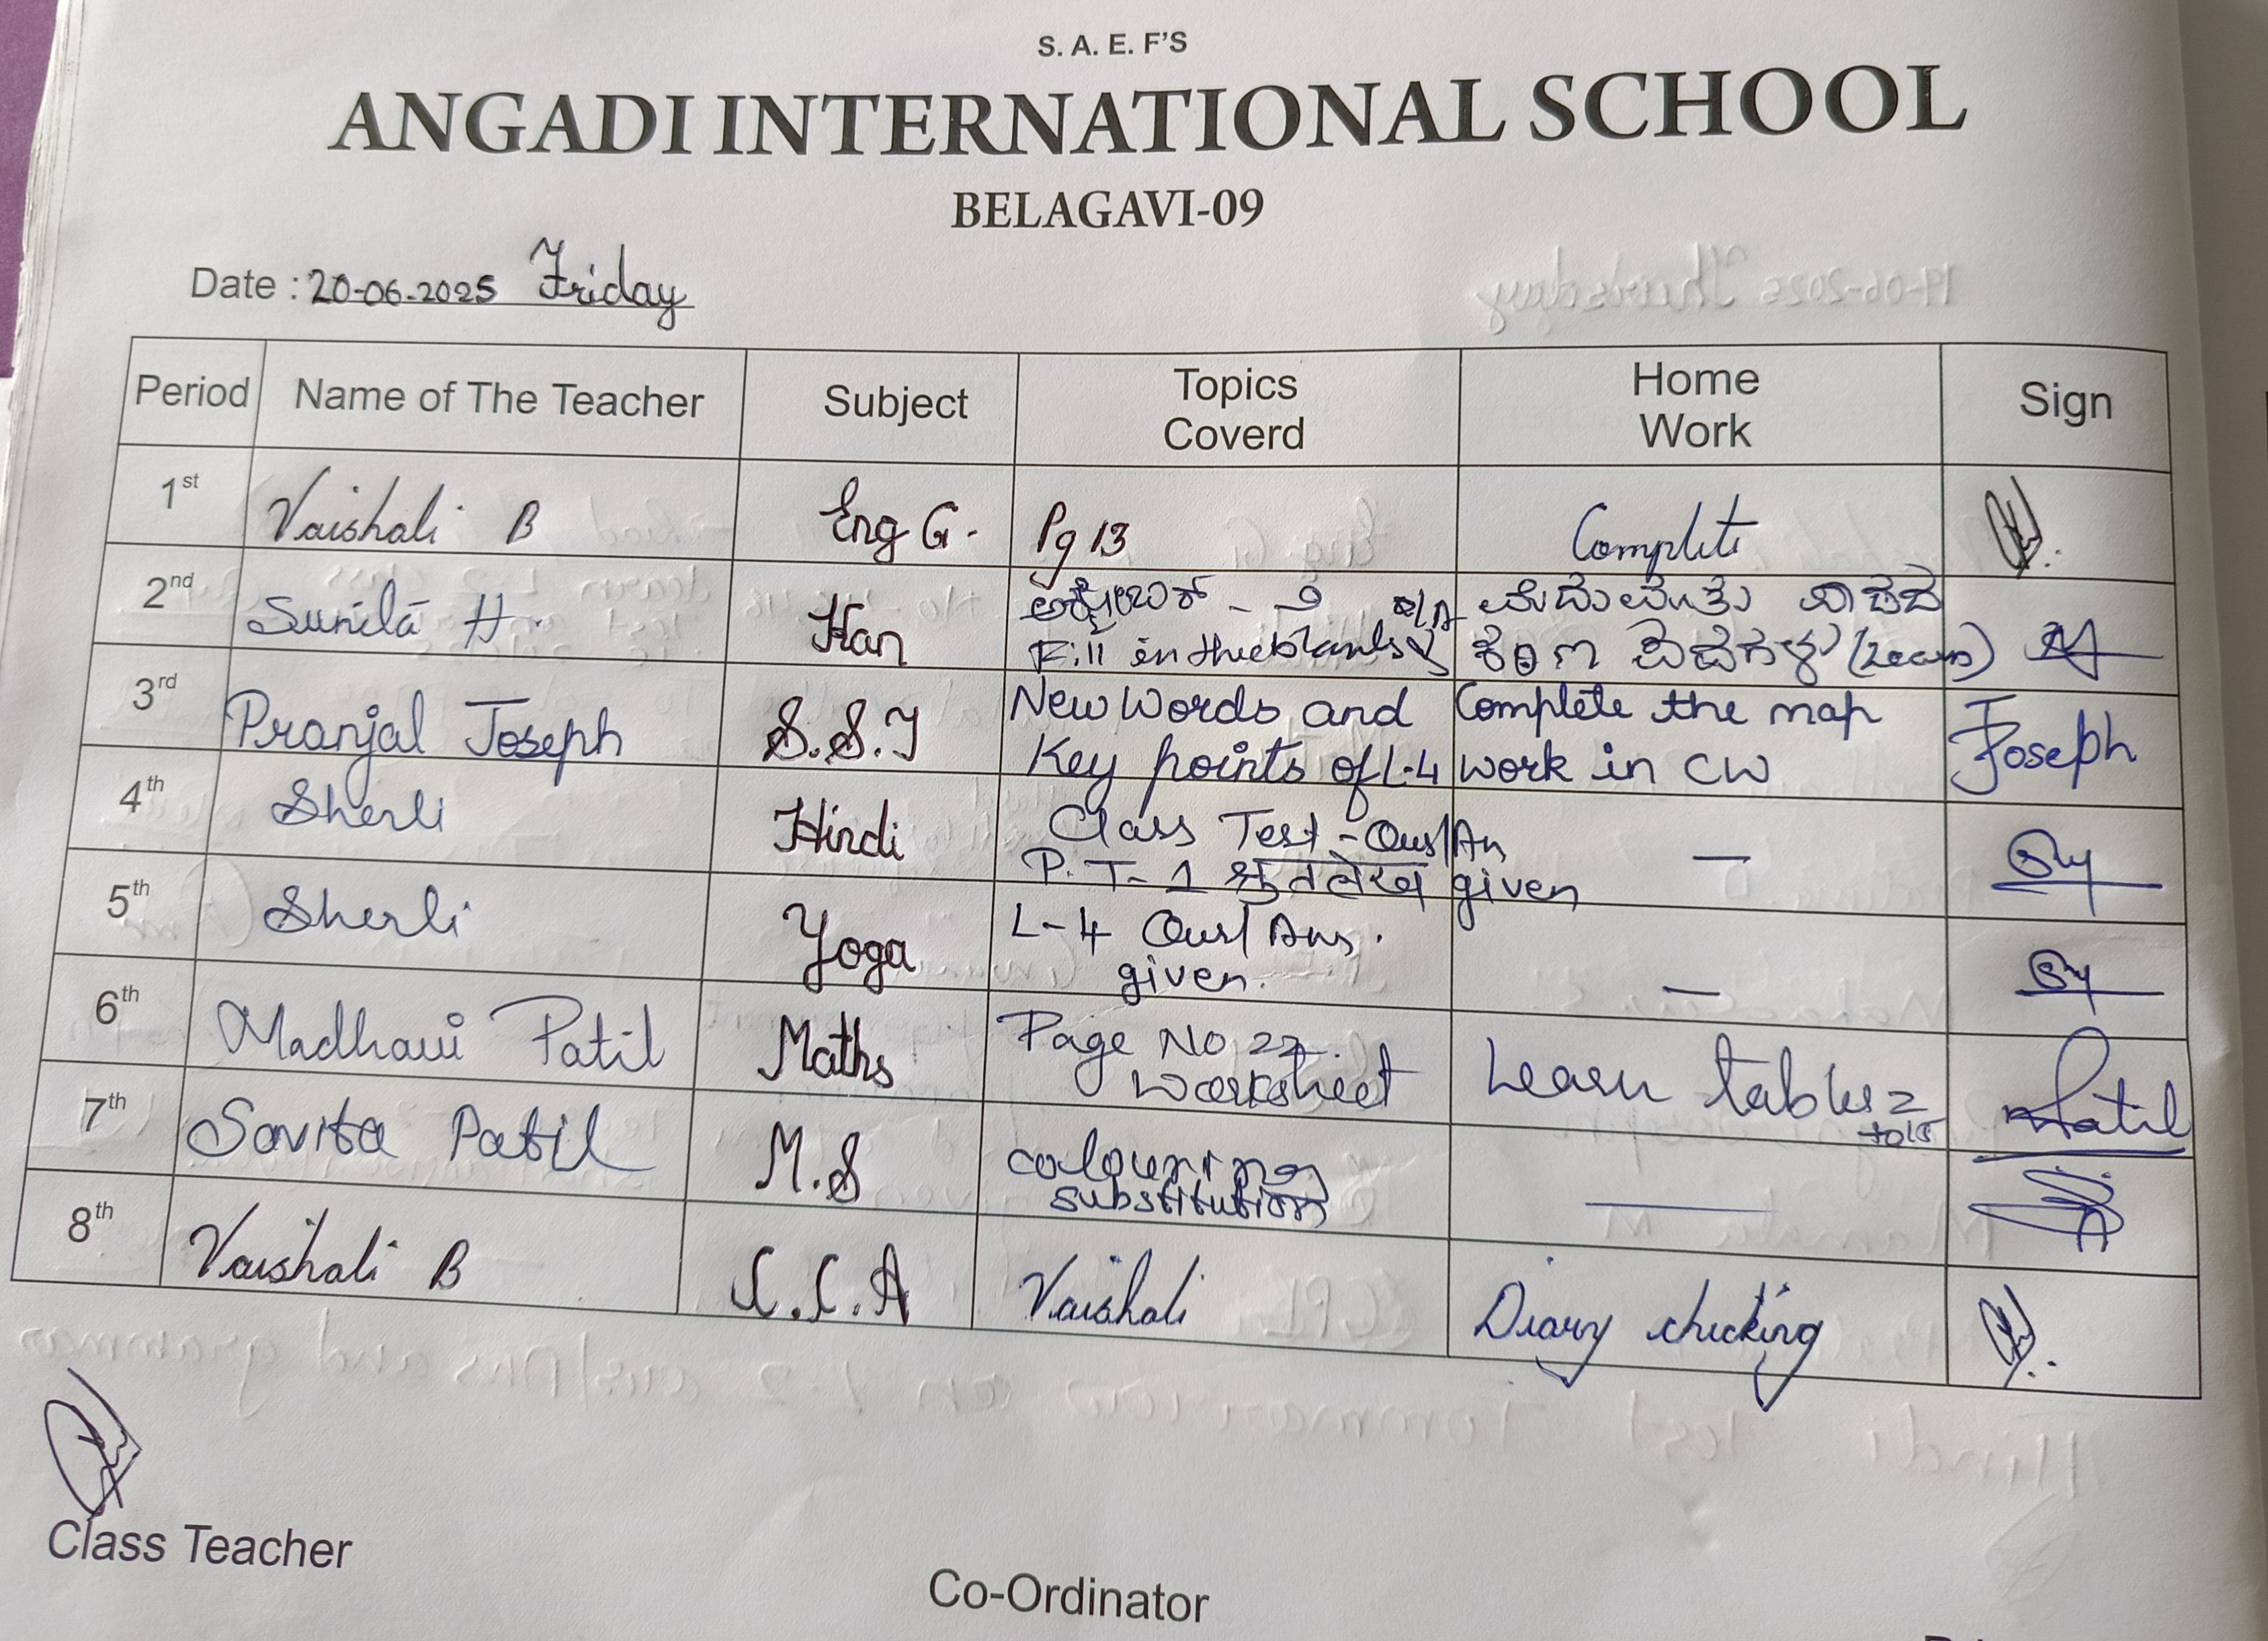 S. A. E. F'S
ANGADI INTERNATIONAL SCHOOL
BELAGAVI-09
Date : 20-06-2025 Friday
Period Name of The Teacher Subject Topics Coverd Home Work Sign
1st Vaishali B Eng G. Pg 13 Complete
2nd Sunita H. Kan
Fill in the blanks (Learn)
3rd Pranjal Joseph S.S.T New Words and Complete the map Joseph
Key points of L-4 work in CW
4th Sherli Hindi Class Test - Qus/An —
P.T-1 श्रुतलेख given
5th Sherli Yoga L-4 Qus/Ans. —
given.
6th Madhavi Patil Maths Page No 22. Learn tables 2 Patil
Worksheet to 15
7th Savita Patil M.S colouring —
substitution
8th Vaishali B C.C.A Vaishali Diary checking
Class Teacher
Co-Ordinator